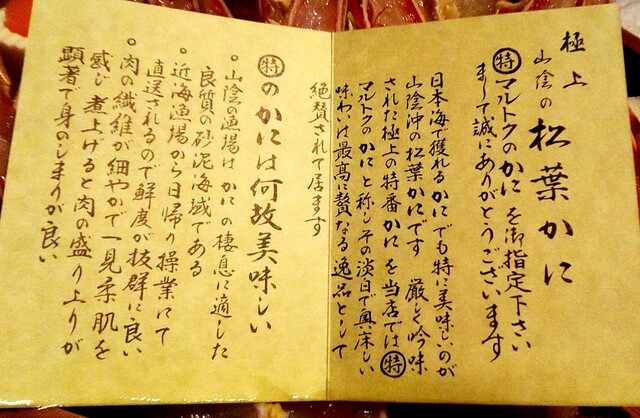 極上
山陰の 松葉かに
㊕マルトクのかに を御指定下さい
まして誠にありがとうございます
日本海で獲れるかにでも特に美味しいのが
山陰沖の松葉かにです 厳しく吟味
された極上の特番かに を当店では㊕
マルトクのかにと称しその淡白で奥床しい
味わいは最高に贅なる逸品として
絶賛されて居ます
㊕のかには何故美味しい
。山陰の漁場は かに の棲息に適した
良質の砂泥海域である
。近海漁場から日帰り操業にて
直送されるので鮮度が抜群に良い
。肉の繊維が細やかで一見柔肌を
感じ煮上げると肉の盛り上りが
顕著で身のしまりが良い